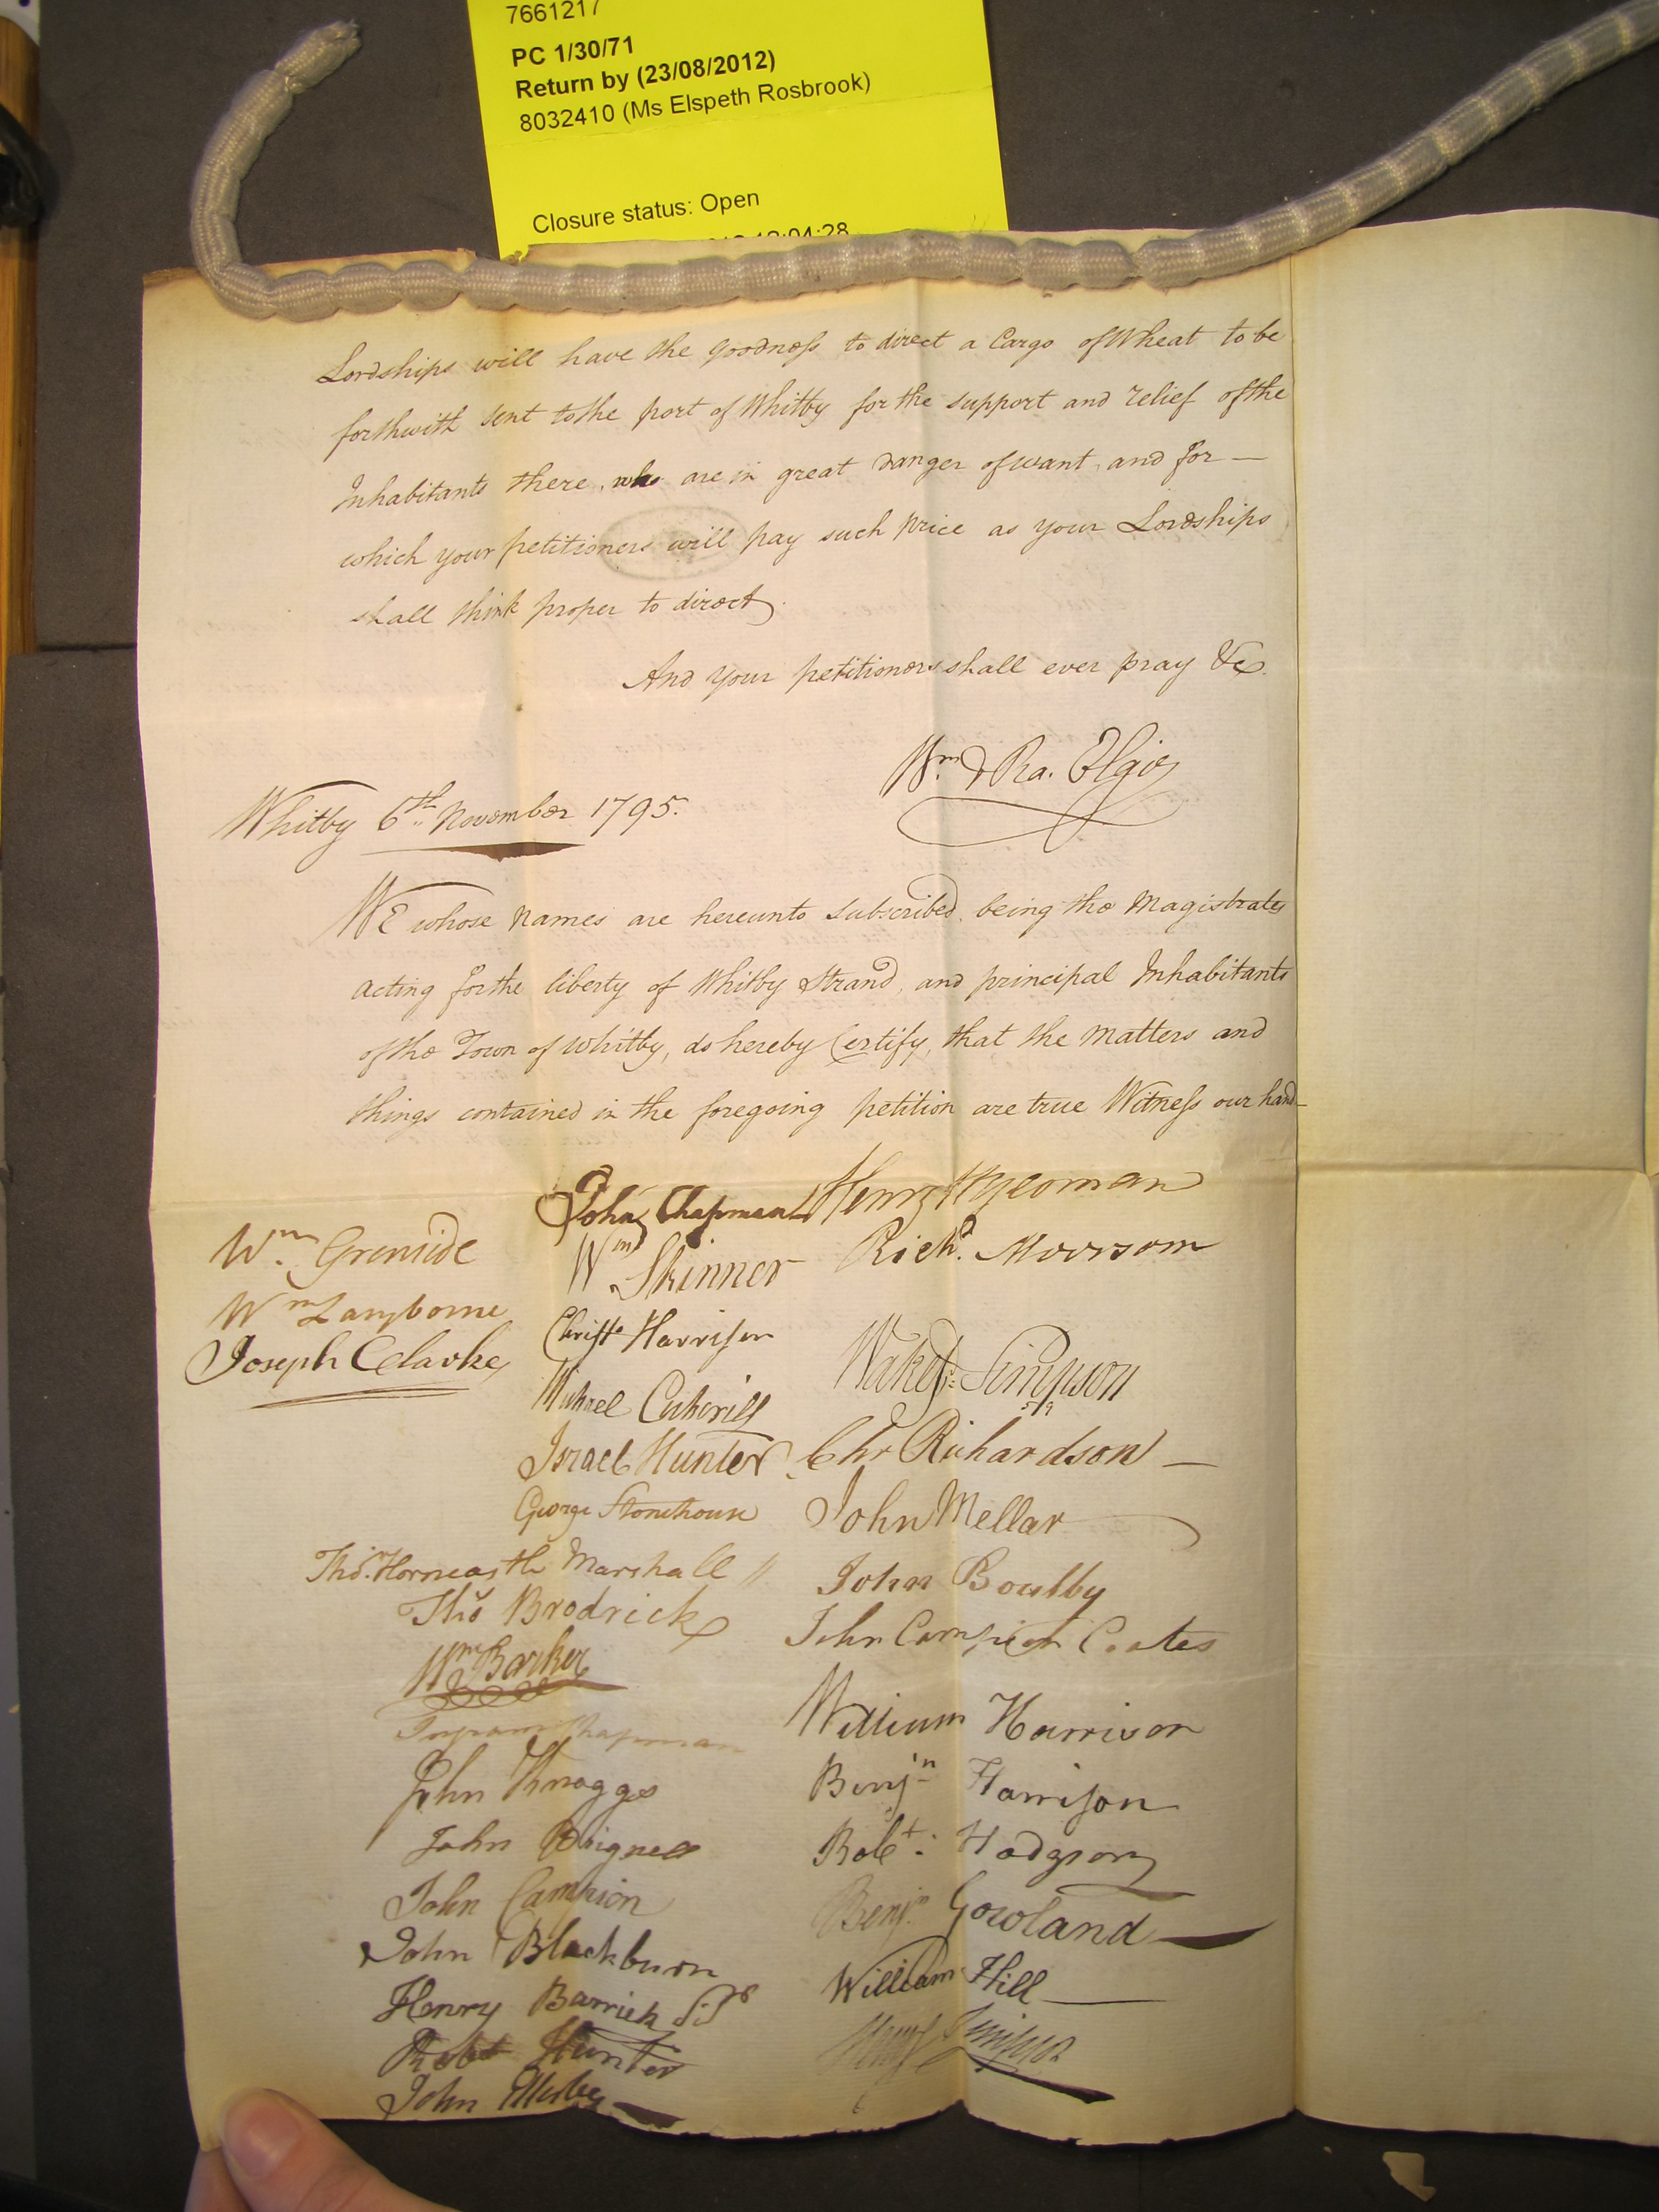 7661217
PC 1/30/71
Return by (23/08/2012)
8032410 (Ms Elspeth Rosbrook)
Closure status: Open
12:04:28
Lordships will have the goodness to direct a Cargo of Wheat to be
forthwith sent to the port of Whitby for the support and relief of the
Inhabitants there, who are in great danger of want, and for —
which your petitioners will pay such price as your Lordships
shall think proper to direct.
And your petitioners shall ever pray &c.
Wm. & Ra. Elgie
Whitby 6th November 1795.
We whose names are hereunto subscribed, being the Magistrates
acting for the liberty of Whitby Strand, and principal Inhabitants
of the Town of Whitby, do hereby Certify, that the Matters and
things contained in the foregoing petition are true Witness our hand
John Chapman
Henry W Yeoman
Wm. Grenside
Wm Skinner
Richd. Moorsom
Wm Langborne
Christr Harrison
Joseph Clarke
Wakefd. Simpson
Michael
Israel Hunter
Chr Richardson —
George Stonehouse
John Mellar
Thos. Horncastle Marshall //
John Boulby
Thos Brodrick
John Campion Coates
Wm Barker
Ingram Chapman
William Harrison
John Knaggs
Benjn Harrison
John
Robt: Hodgson
John Campion
Benjn Gowland
John Blackburn
William Hill
Henry Barrick
Robt Hunter
John Ellerby